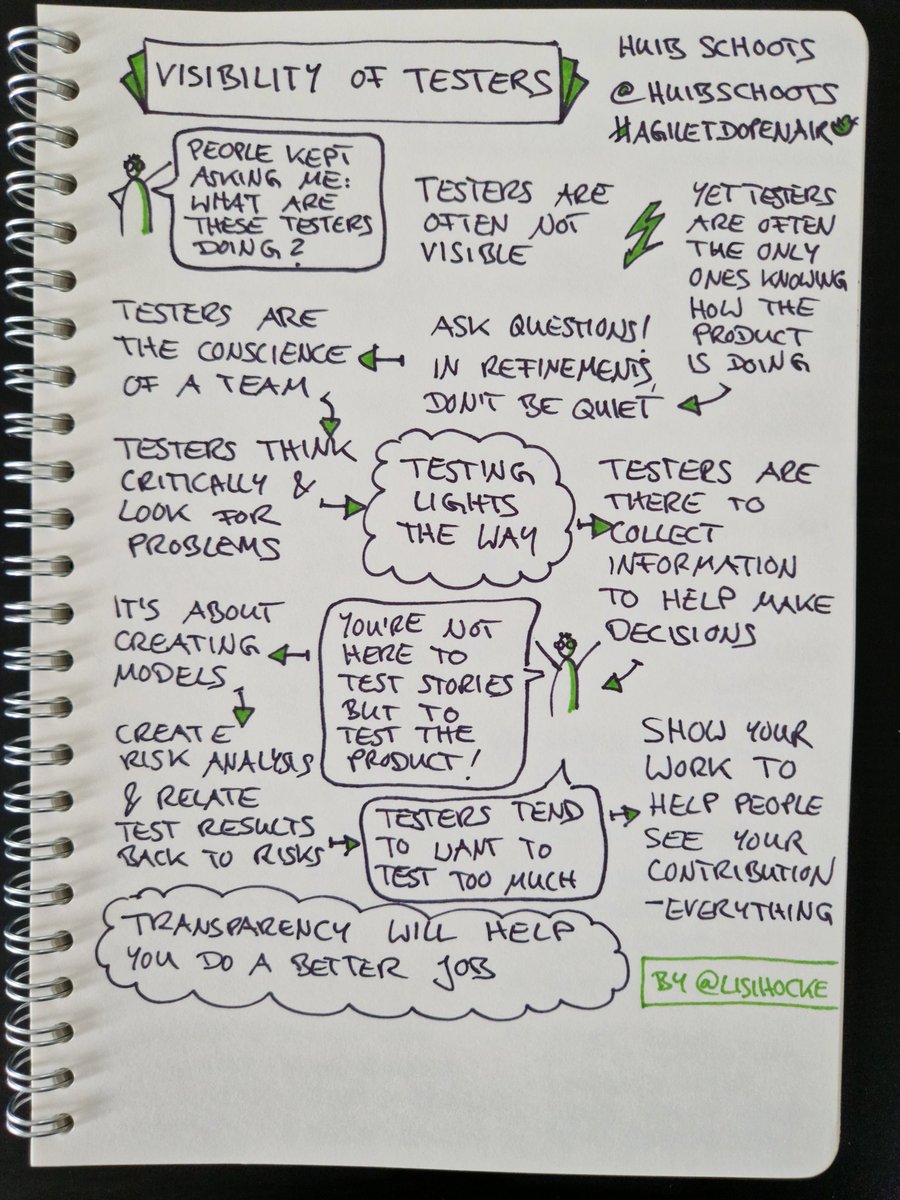 VISIBILITY OF TESTERS
HUIB SCHOOTS
@HUIBSCHOOTS
#AGILETDOPENAIR
PEOPLE KEPT
ASKING ME:
WHAT ARE
THESE TESTERS
DOING?
TESTERS ARE
OFTEN NOT
VISIBLE
YET TESTERS
ARE OFTEN
THE ONLY
ONES KNOWING
HOW THE
PRODUCT
IS DOING
ASK QUESTIONS!
IN REFINEMENTS,
DON'T BE QUIET
TESTERS ARE
THE CONSCIENCE
OF A TEAM
TESTERS THINK
CRITICALLY &
LOOK FOR
PROBLEMS
TESTING
LIGHTS
THE WAY
TESTERS ARE
THERE TO
COLLECT
INFORMATION
TO HELP MAKE
DECISIONS
YOU'RE NOT
HERE TO
TEST STORIES
BUT TO
TEST THE
PRODUCT!
IT'S ABOUT
CREATING
MODELS
CREATE
RISK ANALYSIS
& RELATE
TEST RESULTS
BACK TO RISKS
TESTERS TEND
TO WANT TO
TEST TOO MUCH
SHOW YOUR
WORK TO
HELP PEOPLE
SEE YOUR
CONTRIBUTION
-EVERYTHING
TRANSPARENCY WILL HELP
YOU DO A BETTER JOB
BY @LISIHOCKE